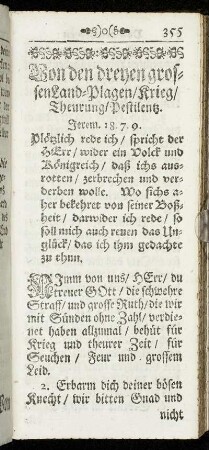 355
Von den dreyen gros-
sen Land-Plagen/ Krieg/
Theurung/ Pestilentz.
Jerem. 18. 7. 9.
Plötzlich rede ich/ spricht der
HErr/ wider ein Volck und
Königreich/ daß ichs aus-
rotten/ zerbrechen und ver-
derben wolle. Wo sichs a-
ber bekehret von seiner Boß-
heit/ darwider ich rede/ so
soll mich auch reuen das Un-
glück/ das ich ihm gedachte
zu thun.
NImm von uns/ HErr/ du
treuer GOtt/ die schwehre
Straff/ und grosse Ruth/ die wir
mit Sünden ohne Zahl/ verdie-
net haben allzumal/ behüt für
Krieg und theurer Zeit/ für
Seuchen/ Feur und grossem
Leid.
2. Erbarm dich deiner bösen
Knecht/ wir bitten Gnad und
nicht